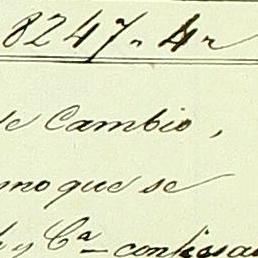 8247 „ 4 r
de Cambio,
mo que se
y Cª confiesa